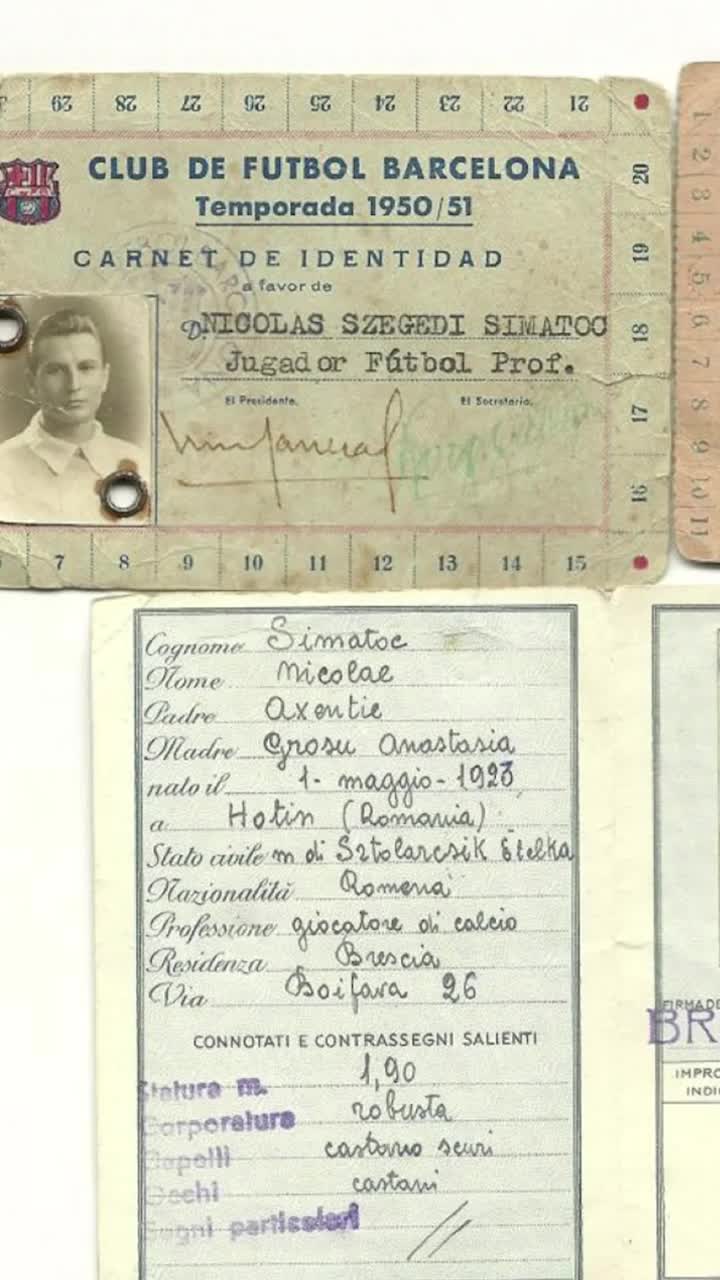 29 28 27 26 25 24 23 22 21
CLUB DE FUTBOL BARCELONA
Temporada 1950/51
CARNET DE IDENTIDAD
a favor de
D. NICOLAS SZEGEDI SIMATOC
Jugador Fútbol Prof.
El Presidente. El Secretario.
20
19
18
17
16
7 8 9 10 11 12 13 14 15
1 2 3 4 5 6 7 8 9 10 11
Cognome Simatoc
Nome Nicolae
Padre Axentie
Madre Grosu Anastasia
nato il 1- maggio - 1923
a Hotin (Romania)
Stato civile m di Sztolarcsik Etelka
Nazionalità Romena
Professione giocatore di calcio
Residenza Brescia
Via Boifava 26
CONNOTATI E CONTRASSEGNI SALIENTI
Statura m. 1,90
Corporatura robusta
Capelli castano scuri
Occhi castani
Segni particolari //
FIRMA DE
BR
IMPRO
INDI